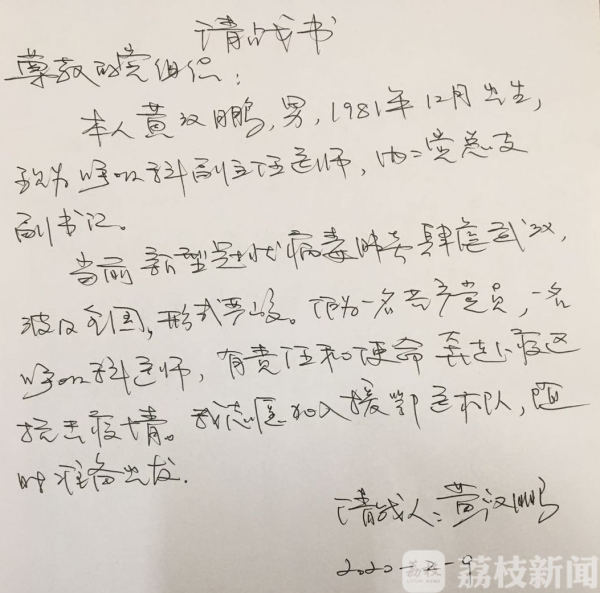 请战书
尊敬的党组织：
本人黄汉鹏，男，1981年12月出生，
现为呼吸科副主任医师，内二党总支
副书记。
当前新型冠状病毒肺炎肆虐武汉，
波及全国，形式严峻。作为一名共产党员，一名
呼吸科医师，有责任和使命奔赴疫区
抗击疫情。我志愿加入援鄂医疗队，随
时准备出发.
请战人：黄汉鹏
2020-2-9
荔枝 荔枝新闻